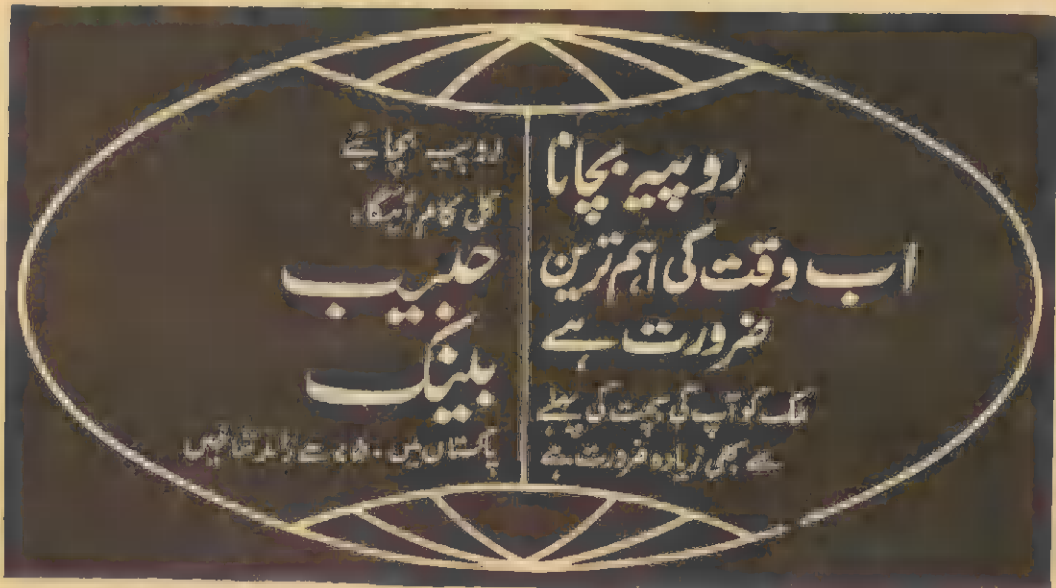 روپیہ بچانا
اب وقت کی اہم ترین
ضرورت ہے
ملک کو آپ کی بچت کی پہلے
سے بھی زیادہ ضرورت ہے
روپیہ بچائیے
کل کام آئیگا۔
حبیب
بینک
پاکستان میں سے زائد شاخیں